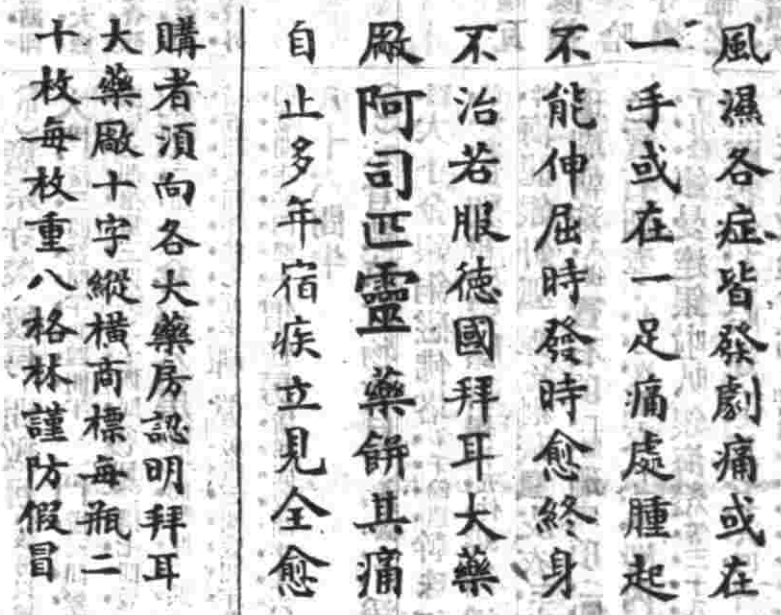 風濕各症皆發劇痛或在
一手或在一足痛處腫起
不能伸屈時發時愈終身
不治若服德國拜耳大藥
廠阿司匹靈藥餅其痛
自止多年宿疾立見全愈
購者須向各大藥房認明拜耳
大藥廠十字縱橫商標每瓶二
十枚每枚重八格林謹防假冒